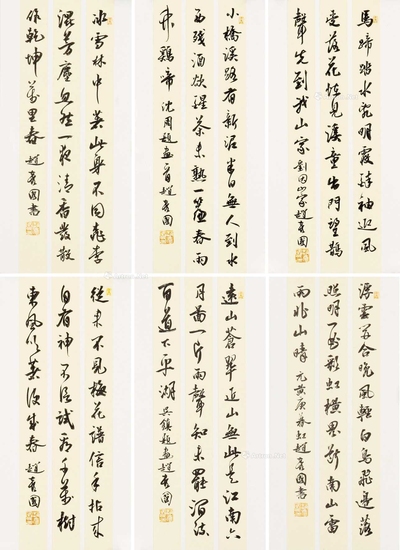 馬蹄踏水亂明霞醉袖迎風
受落花怪見溪童出門望鵲
聲先到我山家 劉因山家 趙喜國
小橋溪路有新泥半日無人到水
西殘酒欲醒茶未熟一簾春雨
竹鷄啼 沈周題畫一首 趙喜國
冰雪林中著此身不同桃李
混芳塵忽然一夜清香發散
作乾坤萬里春 趙喜國書
浮雲開合晚風輕白鳥飛邊落
照明一曲彩虹橫界斷南山雷
雨北山晴 元黃庚暮虹 趙喜國書
遠山蒼翠近山無此是江南六
月圖一片雨聲知未罷澗流
百道下平湖 吳鎮題畫 趙喜國
從來不見梅花譜信手拈來
自有神不信試看千萬樹
東風吹著便成春 趙喜國